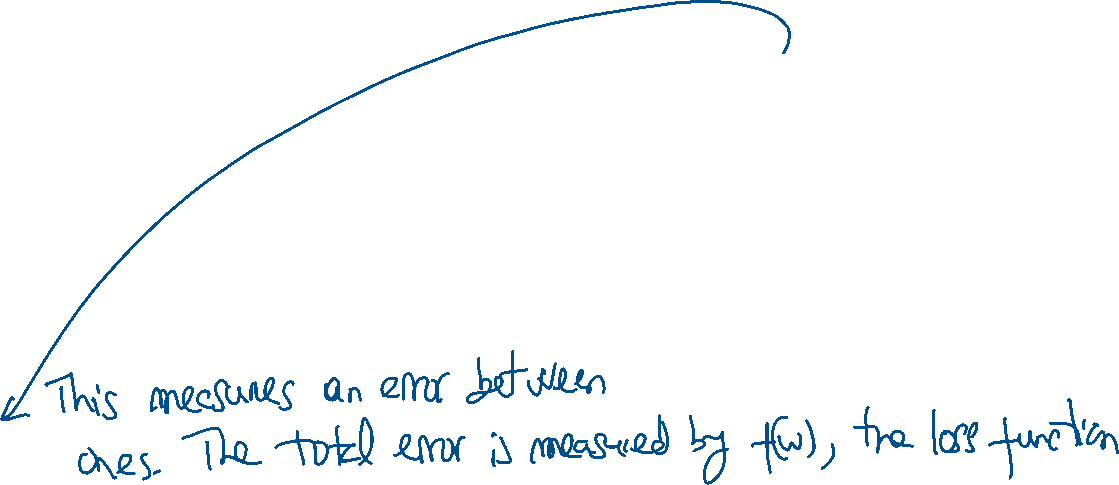 This measures an error between
ones. The total error is measured by f(w), the loss function